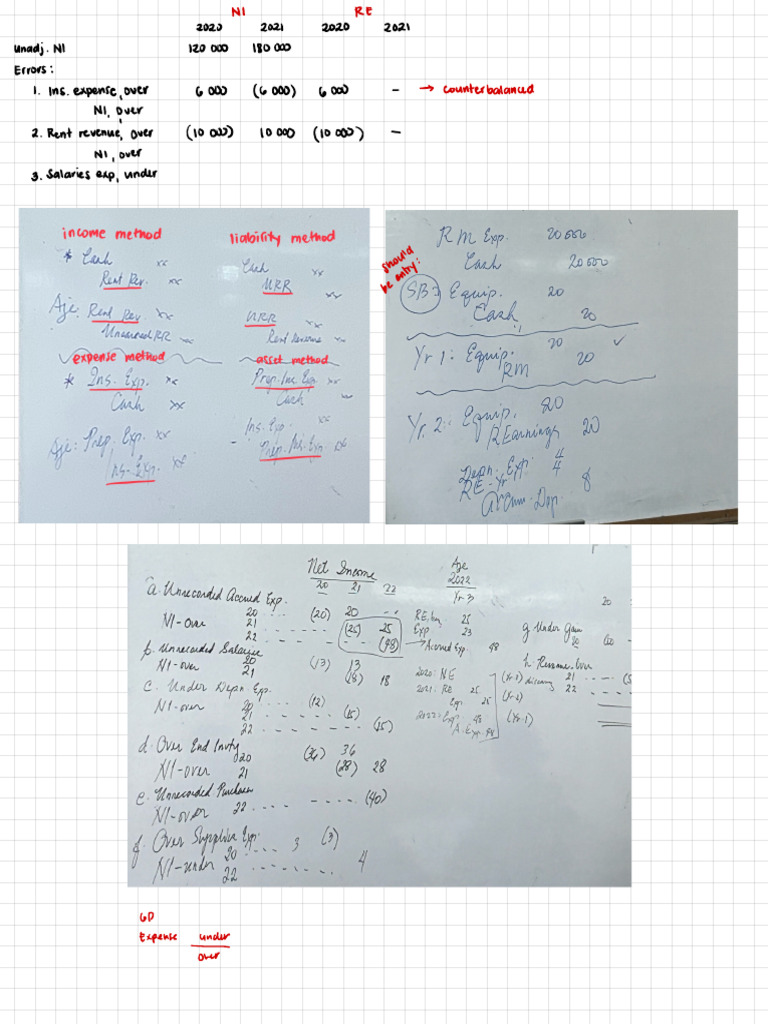 NI RE
2020 2021 2020 2021
Unadj. NI 120 000 180 000
Errors:
1. Ins. expense, over 6 000 (6 000) 6 000 - → counterbalanced
NI, over
2. Rent revenue, over (10 000) 10 000 (10 000) -
NI, over
3. Salaries exp, under
income method
* Cash xx
Rent Rev. xx
Aje: Rent Rev. xx
Unearned RR xx
expense method
* Ins. Exp. xx
Cash xx
Aje: Prep. Exp. xx
Ins. Exp. xx
liability method
Cash xx
URR xx
URR xx
Rent Revenue xx
asset method
Prep. Ins. Exp xx
Cash xx
Ins. Exp. xx
Prep. Ins. Exp xx
RM Exp. 20 000
Cash 20 000
should be entry:
SB: Equip. 20
Cash 20
Yr 1: Equip. 20 ✓
RM 20
Yr. 2: Equip. 20
R Earnings 20
Depn. Exp. 4
RE - Yr 4
Accum. Dep. 8
Net Income
20 21 22
Aje
2022
Yr 3
a. Unrecorded Accrued Exp.
20 (20) 20 --
NI-over 21 (25) 25
22 (48)
RE, beg 25
Exp 23
→ Accrued Exp. 48
b. Unrecorded Salaries
NI-over 20 (13) 13
21 (18) 18
2020: NE
2021: RE 25
Exp. 25
2022: Exp. 48
A. Exp. 48
c. Under Depn Exp.
NI-over 20 (12)
21 (15)
22 (15)
d. Over End Invty
20 (36) 36
NI-over 21 (28) 28
e. Unrecorded Purchases
NI-over 22 (40)
f. Over Supplies Exp.
20 3 (3)
NI-under 22 4
g. Under Gain
(Yr-1)
(Yr-2)
(Yr-1)
21
22
GD
Expense under
over